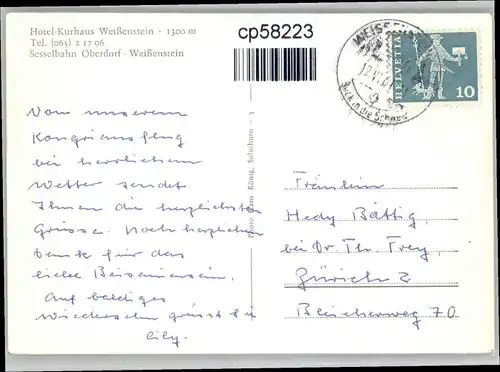 Hotel-Kurhaus Weißenstein - 1300 m
Tel. (065) 2 17 06
Sesselbahn Oberdorf - Weißenstein
cp58223
WEISSEN
Blick in die Schweiz
HELVETIA
10
Von unserem
Kongressausflug
bei herrlichem
Wetter sendet
Ihnen die herzlichsten
Grüsse. Noch herzlichen
Dank für das
liebe Beisammensein.
Auf baldiges
Wiedersehn grüsst Sie
Cily.
Photo Hans König, Solothurn
Fräulein
Hedy Bättig,
bei Dr. Th. Frey,
Zürich 2
Bleicherweg 70